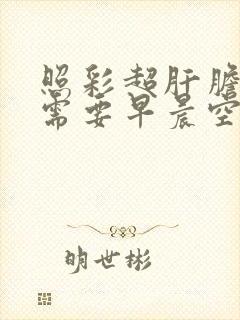 照彩超肝胆
需要早晨空
明世彬